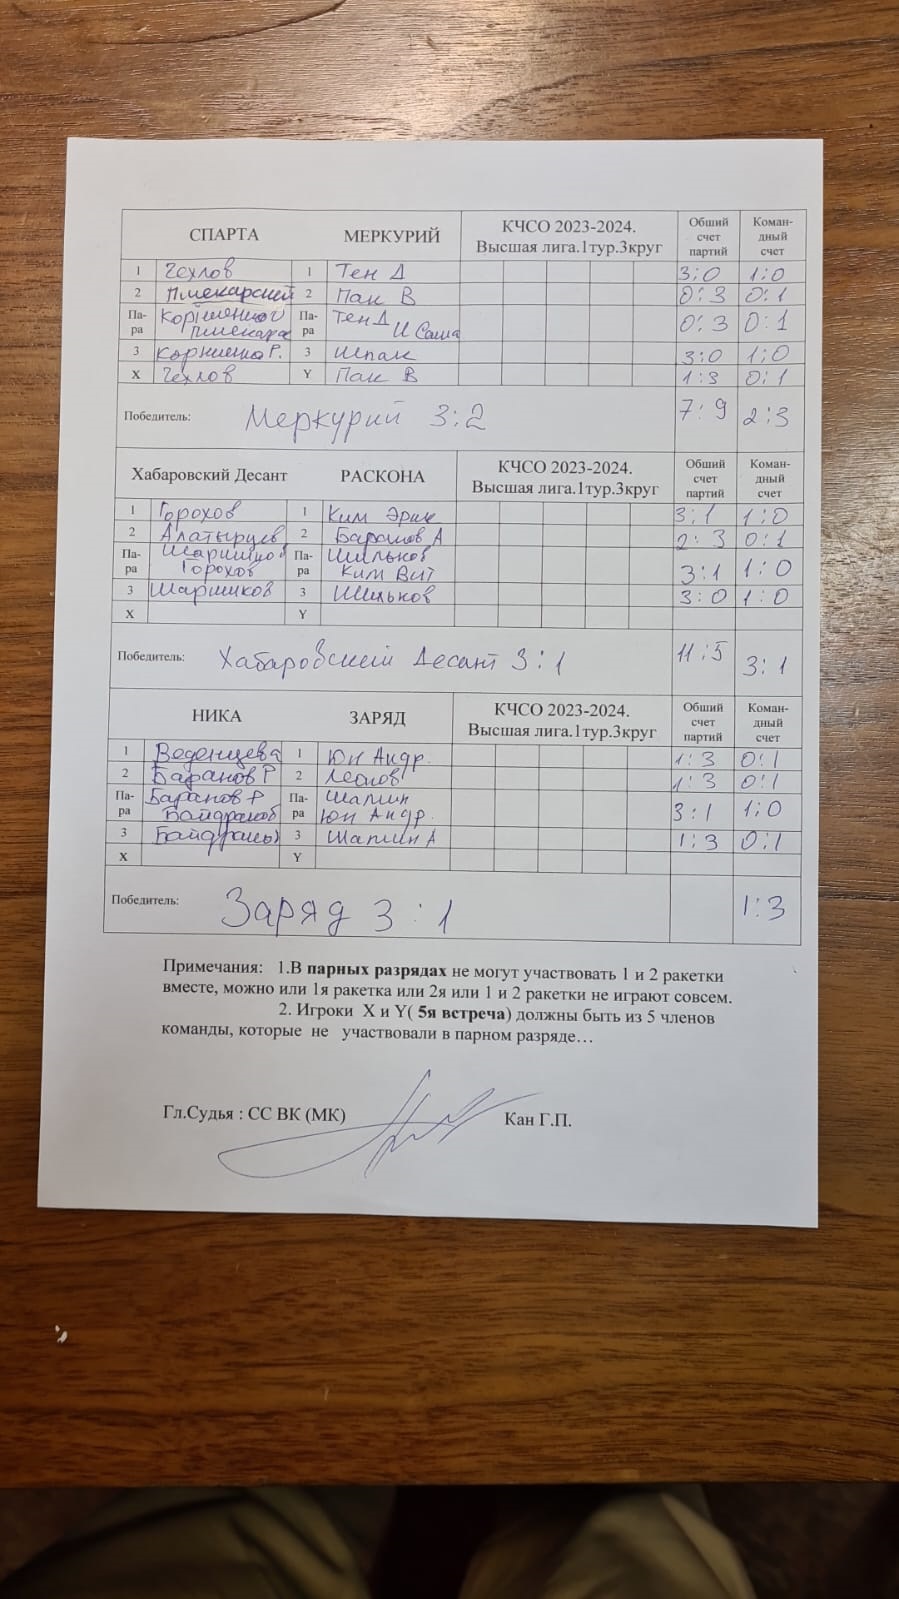 СПАРТА МЕРКУРИЙ КЧСО 2023-2024. Высшая лига.1тур.3круг Общий счет партий Коман-дный счет
1 Чехлов 1 Тен Д 3:0 1:0
2 2 Пак В 0:3 0:1
Па-ра Па-ра Тен Д 0:3 0:1
3 Корниенко Р. 3 3:0 1:0
X Чехлов Y Пак В 1:3 0:1
Победитель: Меркурий 3:2 7:9 2:3
Хабаровский Десант РАСКОНА КЧСО 2023-2024. Высшая лига.1тур.3круг Общий счет партий Коман-дный счет
1 Горохов 1 Ким Эрик 3:1 1:0
2 Алатырцев 2 А 2:3 0:1
Па-ра Шаршиков Па-ра Шильков
Горохов Ким Вит 3:1 1:0
3 Шаршиков 3 Шильков 3:0 1:0
X Y
Победитель: Хабаровский Десант 3:1 11:5 3:1
НИКА ЗАРЯД КЧСО 2023-2024. Высшая лига.1тур.3круг Общий счет партий Коман-дный счет
1 Веденцева 1 Юн Андр. 1:3 0:1
2 Баранов Р 2 1:3 0:1
Па-ра Баранов Р Па-ра
Юн Андр. 3:1 1:0
3 3 1:3 0:1
X Y
Победитель: Заряд 3:1 1:3
Примечания: 1.В парных разрядах не могут участвовать 1 и 2 ракетки
вместе, можно или 1я ракетка или 2я или 1 и 2 ракетки не играют совсем.
2. Игроки X и Y( 5я встреча) должны быть из 5 членов
команды, которые не участвовали в парном разряде…
Гл.Судья : СС ВК (МК) Кан Г.П.